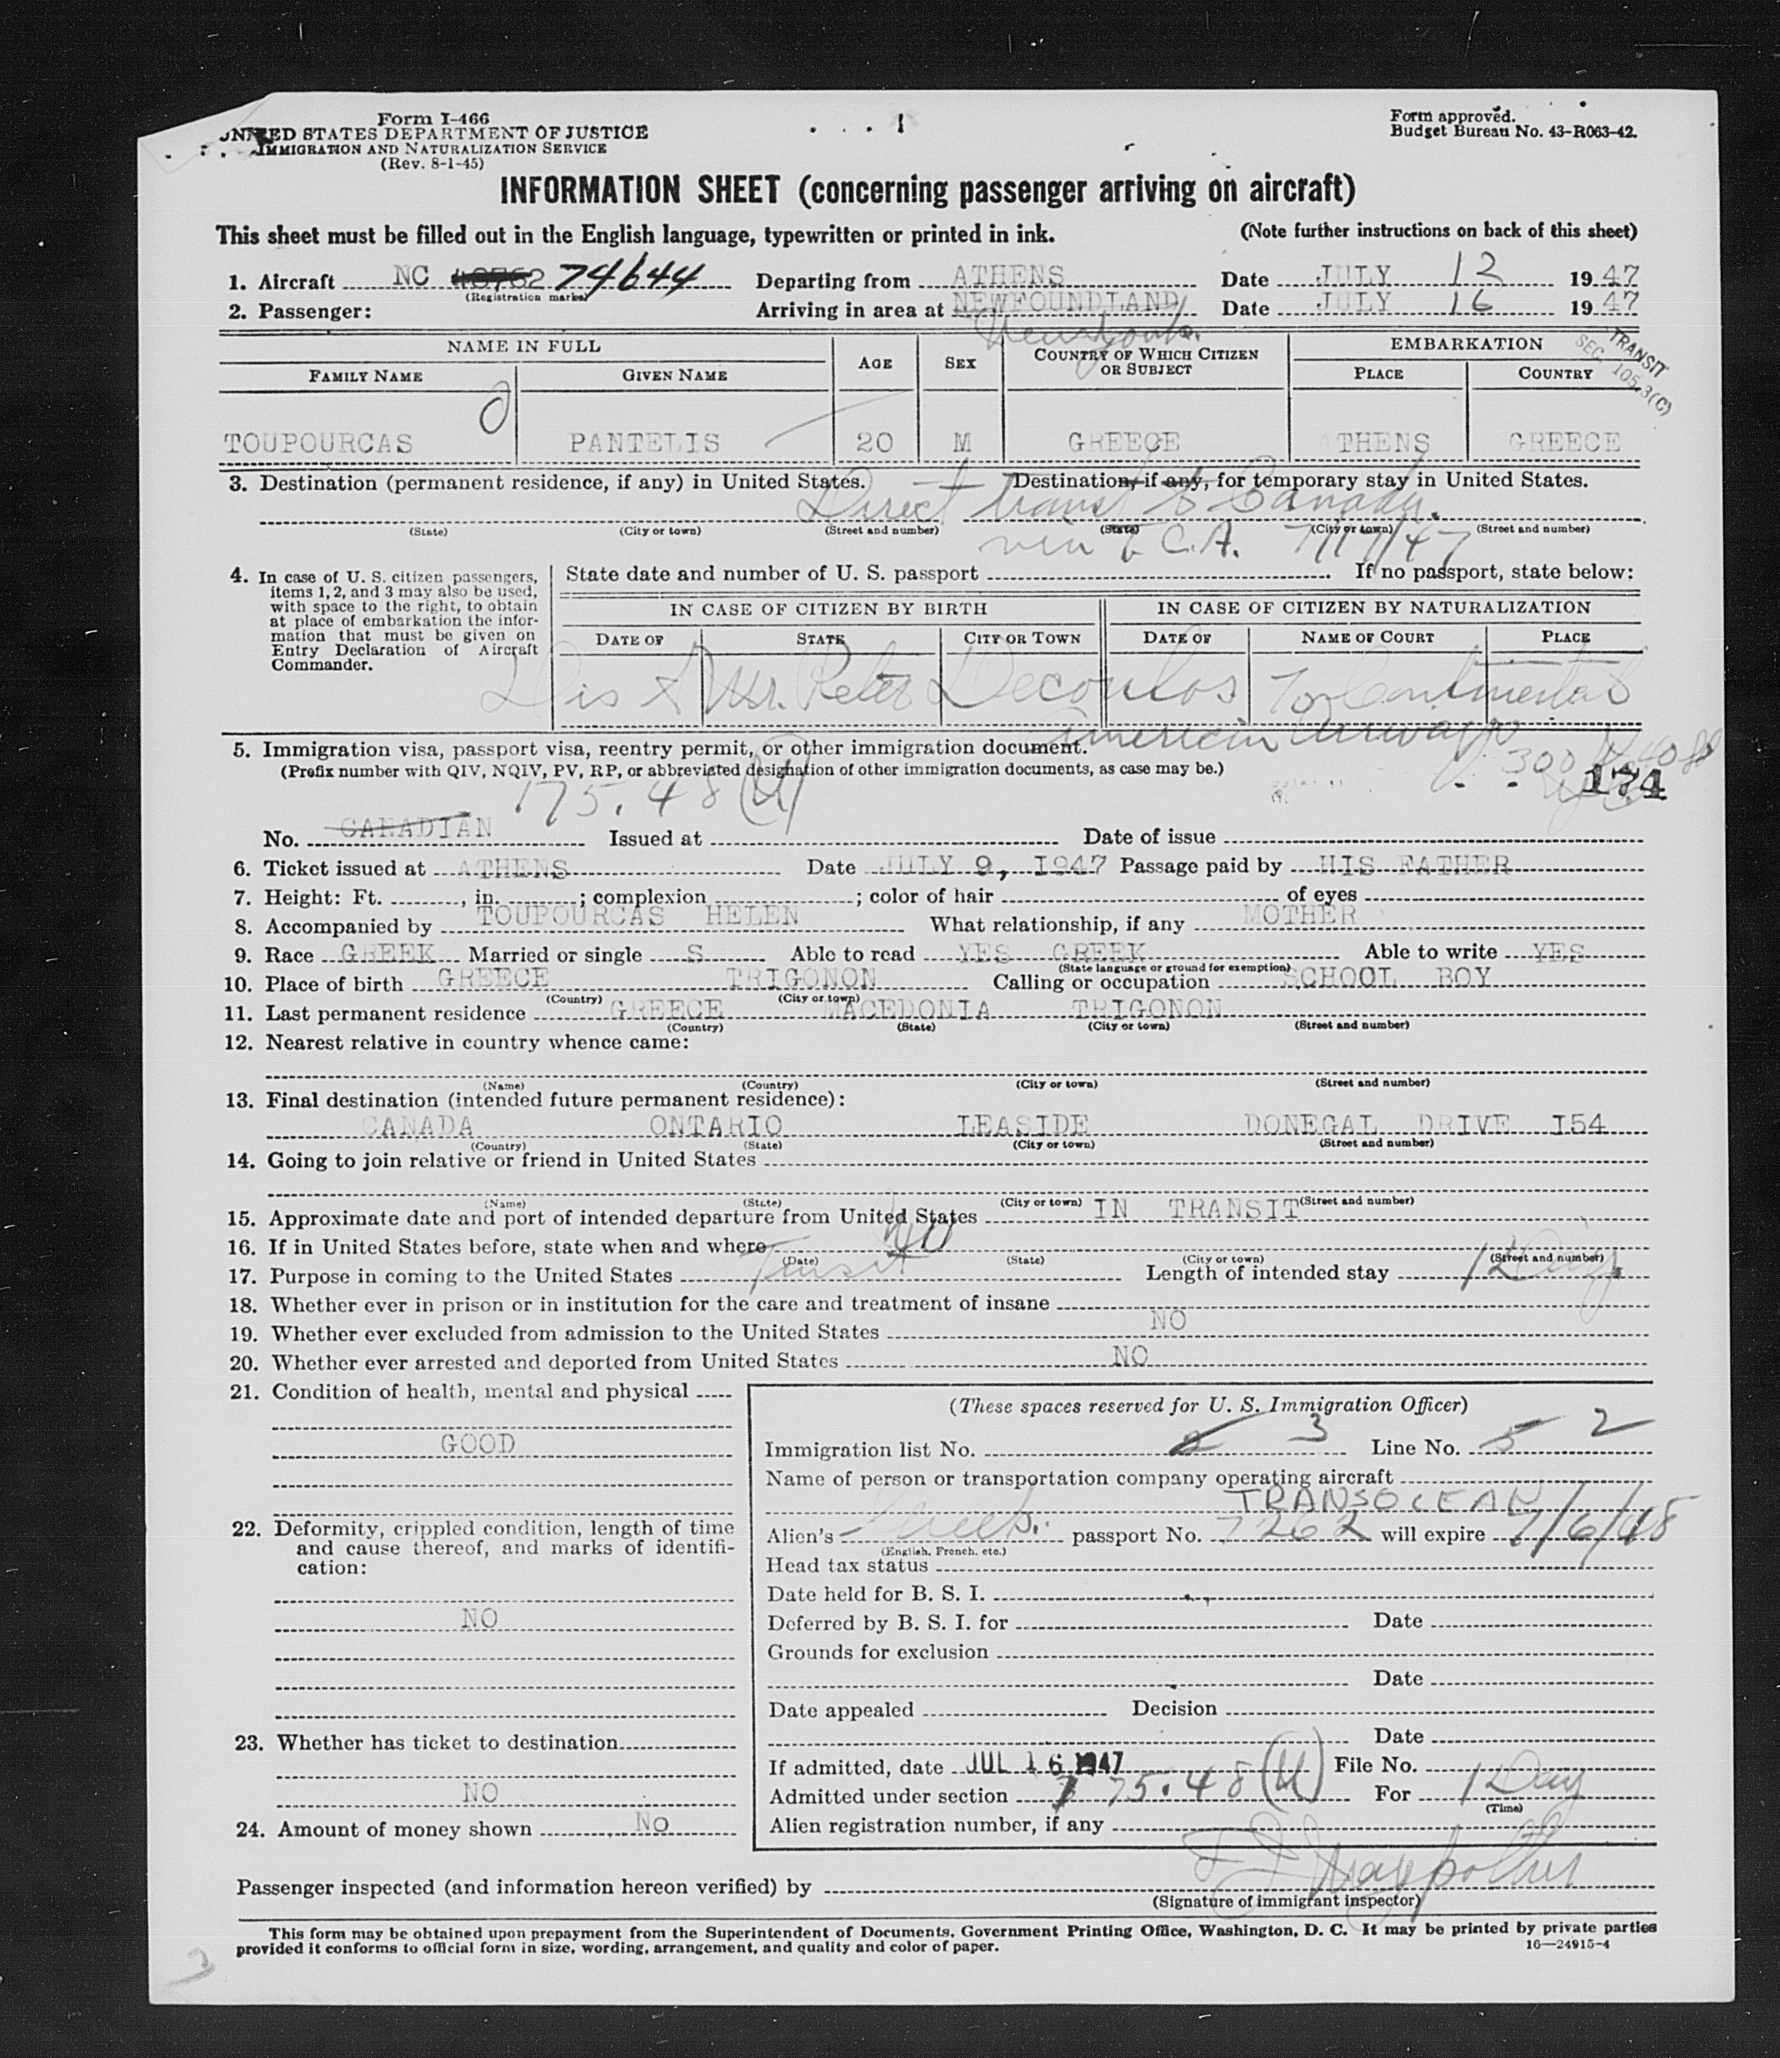 Form I-466
UNITED STATES DEPARTMENT OF JUSTICE
IMMIGRATION AND NATURALIZATION SERVICE
(Rev. 8-1-45)
Form approved.
Budget Bureau No. 43-R063-42.
INFORMATION SHEET (concerning passenger arriving on aircraft)
This sheet must be filled out in the English language, typewritten or printed in ink. (Note further instructions on back of this sheet)
1. Aircraft NC 74644 Departing from ATHENS Date JULY 12 1947
(Registration marks)
2. Passenger: Arriving in area at NEWFOUNDLAND Date JULY 16 1947
TRANSIT
SEC 105.3(C)
NAME IN FULL AGE SEX COUNTRY OF WHICH CITIZEN OR SUBJECT EMBARKATION
FAMILY NAME GIVEN NAME PLACE COUNTRY
TOUPOURCAS PANTELIS 20 M GREECE ATHENS GREECE
3. Destination (permanent residence, if any) in United States. Destination, if any, for temporary stay in United States.
Direct trans to Canada.
(State) (City or town) (Street and number) (State) (City or town) (Street and number)
via C.A. 7/17/47
4. In case of U. S. citizen passengers, items 1, 2, and 3 may also be used, with space to the right, to obtain at place of embarkation the information that must be given on Entry Declaration of Aircraft Commander.
State date and number of U. S. passport If no passport, state below:
IN CASE OF CITIZEN BY BIRTH IN CASE OF CITIZEN BY NATURALIZATION
DATE OF STATE CITY OR TOWN DATE OF NAME OF COURT PLACE
Dis to Mr. Peter Decoulos For Continental
American Airways
5. Immigration visa, passport visa, reentry permit, or other immigration document.
(Prefix number with QIV, NQIV, PV, RP, or abbreviated designation of other immigration documents, as case may be.)
300
174
175.48 (U)
No. CANADIAN Issued at Date of issue
6. Ticket issued at ATHENS Date JULY 9, 1947 Passage paid by HIS FATHER
7. Height: Ft. , in. ; complexion ; color of hair of eyes
8. Accompanied by TOUPOURCAS HELEN What relationship, if any MOTHER
9. Race GREEK Married or single S Able to read YES GREEK Able to write YES
(State language or ground for exemption)
10. Place of birth GREECE TRIGONON Calling or occupation SCHOOL BOY
(Country) (City or town)
11. Last permanent residence GREECE MACEDONIA TRIGONON
(Country) (State) (City or town) (Street and number)
12. Nearest relative in country whence came:
(Name) (Country) (City or town) (Street and number)
13. Final destination (intended future permanent residence):
CANADA ONTARIO LEASIDE DONEGAL DRIVE 154
(Country) (State) (City or town) (Street and number)
14. Going to join relative or friend in United States
(Name) (State) (City or town) (Street and number)
15. Approximate date and port of intended departure from United States IN TRANSIT
16. If in United States before, state when and where No
(Date) (State) (City or town) (Street and number)
17. Purpose in coming to the United States Transit Length of intended stay 1 Day.
18. Whether ever in prison or in institution for the care and treatment of insane
19. Whether ever excluded from admission to the United States NO
20. Whether ever arrested and deported from United States NO
21. Condition of health, mental and physical
GOOD
22. Deformity, crippled condition, length of time and cause thereof, and marks of identification:
NO
23. Whether has ticket to destination
NO
24. Amount of money shown No
(These spaces reserved for U. S. Immigration Officer)
Immigration list No. 2 3 Line No. 5 2
Name of person or transportation company operating aircraft
TRANSOCEAN
Alien's Greek passport No. 7262 will expire 7/6/48
(English, French, etc.)
Head tax status
Date held for B. S. I.
Deferred by B. S. I. for Date
Grounds for exclusion
Date
Date appealed Decision
Date
If admitted, date JUL 16 1947 File No.
Admitted under section 175.48 (U) For 1 Day
(Time)
Alien registration number, if any
Passenger inspected (and information hereon verified) by
(Signature of immigrant inspector)
This form may be obtained upon prepayment from the Superintendent of Documents, Government Printing Office, Washington, D. C. It may be printed by private parties
provided it conforms to official form in size, wording, arrangement, and quality and color of paper. 16—24915-4